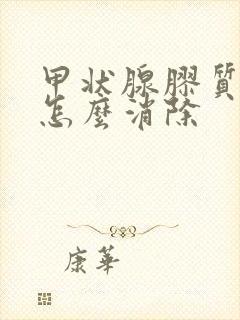 甲状腺膠質
怎麼消除
康華